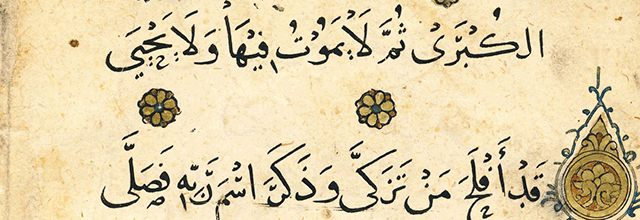 الكُبْرَىٰ ثُمَّ لَا يَمُوتُ فِيهَا وَلَا يَحْيَى
قَدْ أَفْلَحَ مَنْ تَزَكَّى وَذَكَرَ اسْمَ رَبِّهِ فَصَلَّى